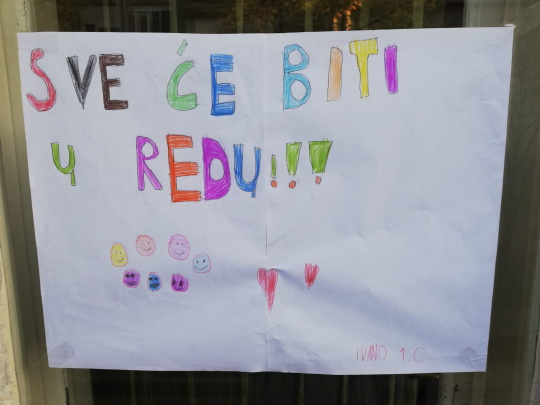 SVE ĆE BITI
U REDU!!!
IVANO 1.C